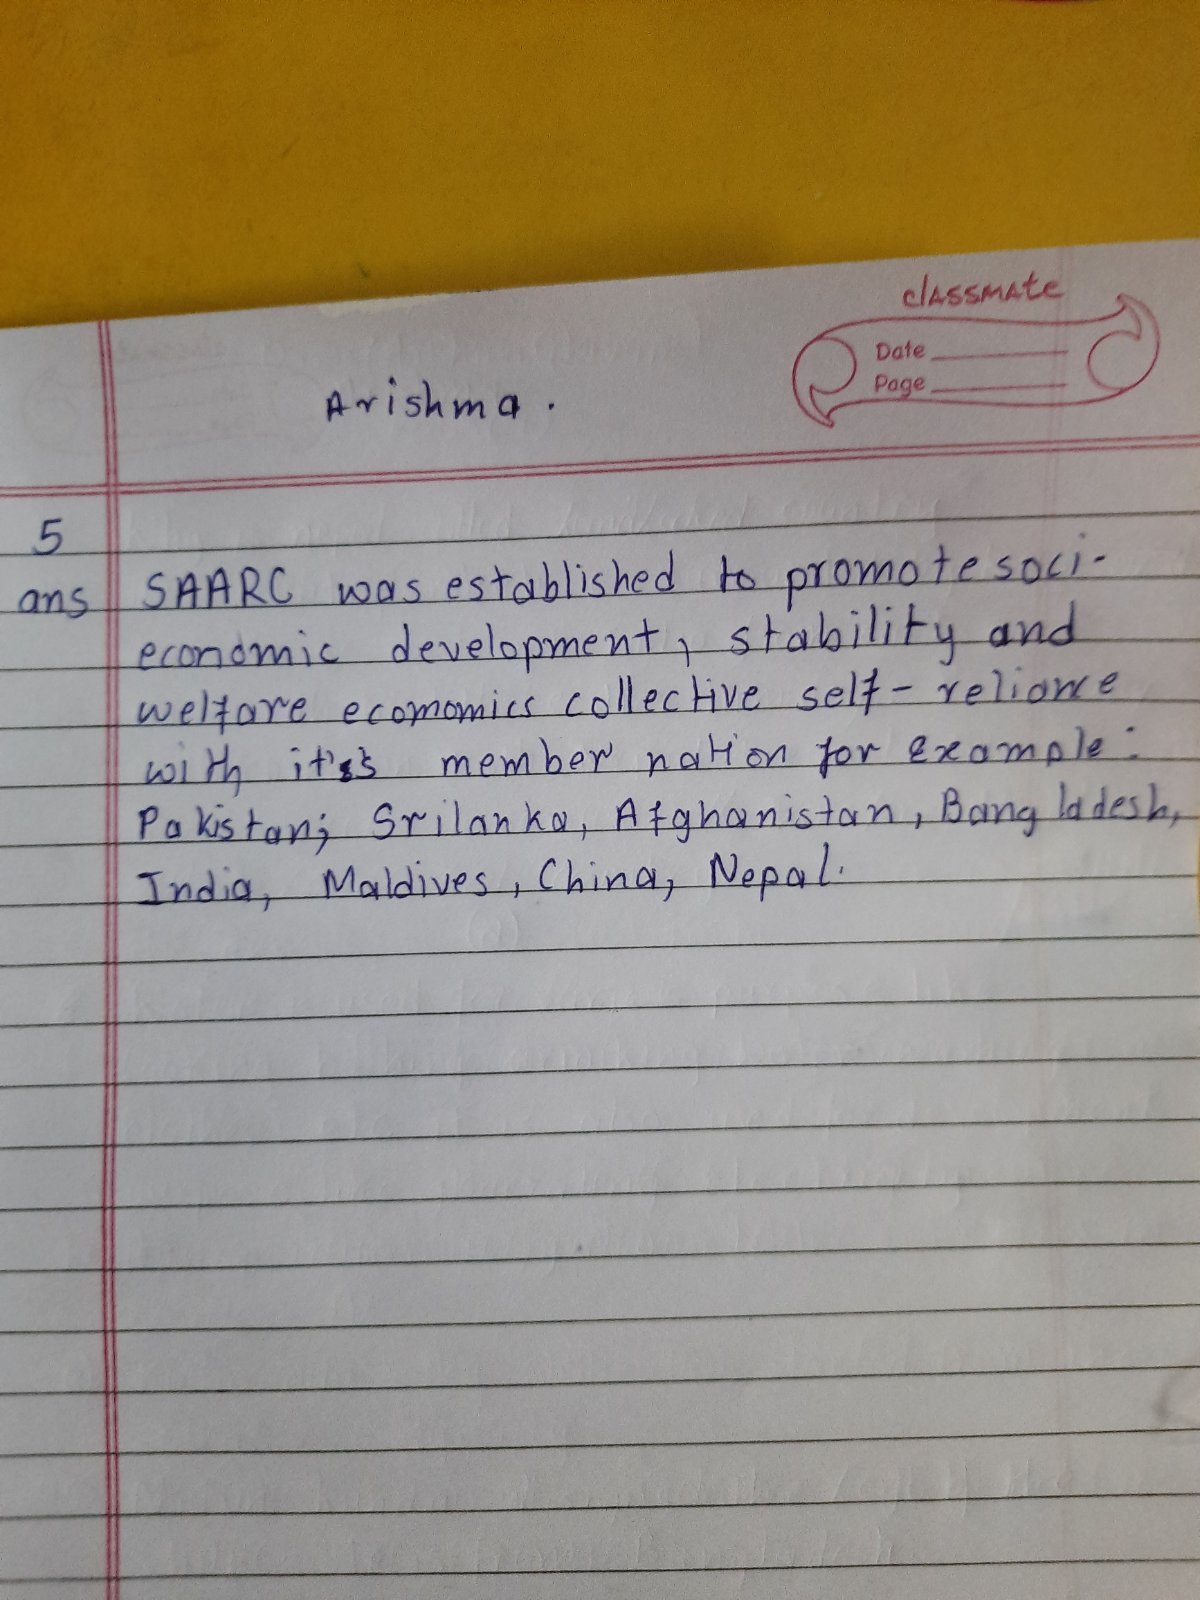 classmate
Date
Page
Arishma.
5
ans SAARC was established to promote soci-
economic development, stability and
welfare ecomomics collective self-reliance
with it's member nation for example:
Pakistan, Srilanka, Afghanistan, Bangladesh,
India, Maldives, China, Nepal.